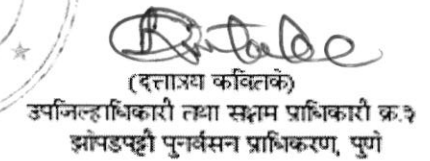 (दत्तात्रय कवितके)
उपजिल्हाधिकारी तथा सक्षम प्राधिकारी क्र.३
झोपडपट्टी पुनर्वसन प्राधिकरण, पुणे